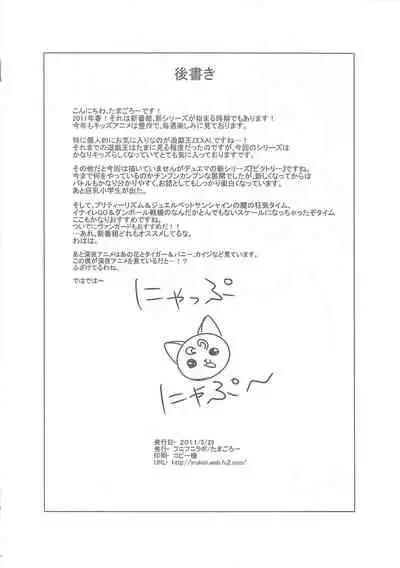 後書き
こんにちわ、たまごろーです！
2011年春！それは新番組、新シリーズが始まる時期でもあります！
今年もキッズアニメは豊作で、毎週楽しみに見ております。
特に個人的にお気に入りなのが遊戯王ZEXAL。
それまでの遊戯王はたまに見る程度だったのですが、今回のシリーズは
かなりキッズらしくなっていてとても気に入っております。
その他だと今回は描いていませんがデュエマの新シリーズ『ビクトリー』ですね。
今まで何をやっているのかチンプンカンプンな展開でしたが、新しくなってから
バトルもかなり分かりやすく、お話としてもしっかり面白くなっています。
あと巨乳小学生が出た。
そして、プリティーリズム＆ジュエルペットサンシャインの魔の狂気タイム。
イナイレGO＆ダンボール戦機のなんだかとんでもないスケールになっちゃったぞタイム
ここもかなりおすすめですね。
ついでにヴァンガードもおすすめだ！！
…あれ、新番組どれもオススメしてるな。
わはは。
あと深夜アニメはあの花とタイガー＆バニー、カイジなど見ています。
この僕が深夜アニメを見ているだと…！？
ふざけてるわね。
ではでは～
にゃっぷ
にゃぷ～
発行日・ 2011/5/29
発行・ フニフニラボ/たまごろー
印刷・ コピー機
URL・ http://